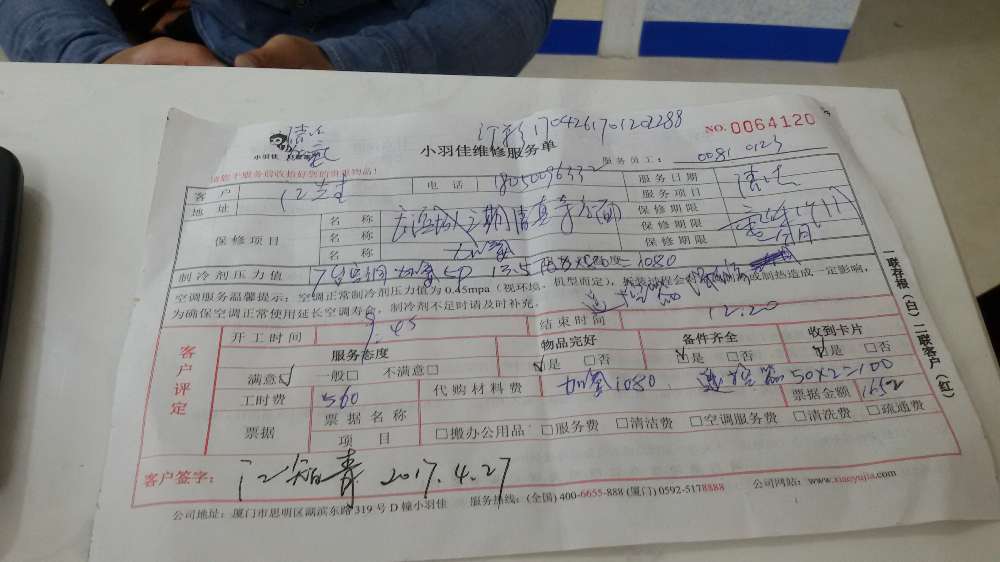 清洗
订单170426170120288
NO.0064120
小羽佳
小羽佳维修服务单
服务员工： 0081 0123
请您于服务前收拾好您的贵重物品！
客户 江先生 电话 服务日期
地址 服务项目 清洗
保修项目 名称 保修期限
名称 保修期限
名称 加氟 保修期限
制冷剂压力值 加氟 13.5 =1080
空调服务温馨提示：空调正常制冷剂压力值为0.45mpa（视环境、机型而定），拆装过程会对制冷或制热造成一定影响，
为确保空调正常使用延长空调寿命，制冷剂不足时请及时补充。
遥控器
客户评定
开工时间 9.45 结束时间 12.20
服务态度 物品完好 备件齐全 收到卡片
满意☑ 一般□ 不满意□ ☑是 □否 ☑是 □否 ☑是 □否
工时费 560 代购材料费 加氟1080 遥控器50×2=100
票据 票据名称 票据金额
项目 □搬办公用品 □服务费 □清洁费 □空调服务费 □清洗费 □疏通费
客户签字： 2017.4.27
公司地址：厦门市思明区湖滨东路319号D幢小羽佳 服务热线：(全国) 400-6655-888 (厦门) 0592-5178888 公司网站：www.xiaoyujia.com
一联存根（白）二联客户（红）